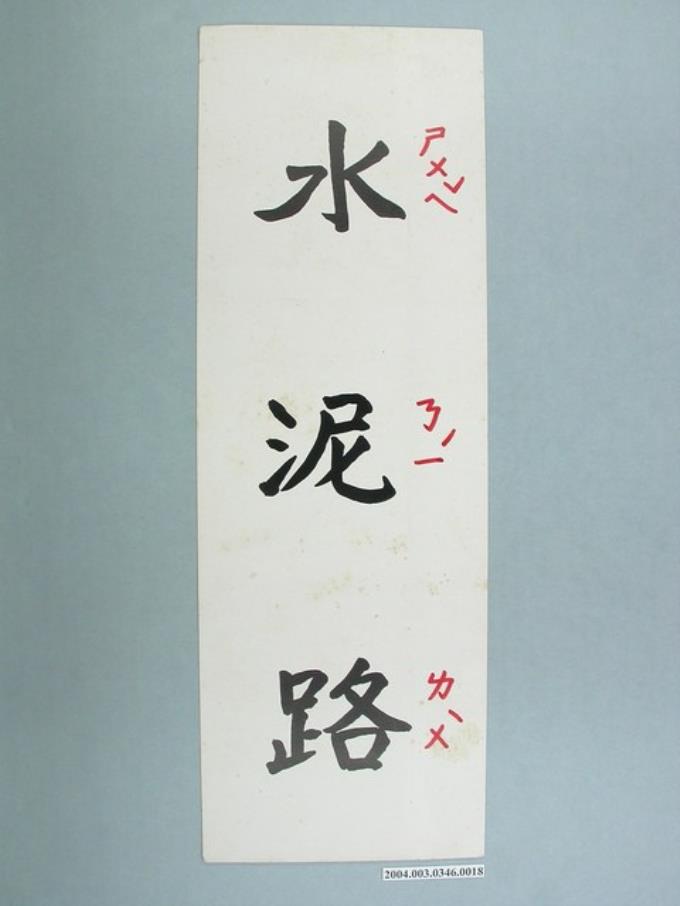 水泥路
ㄕㄨㄟˇ
ㄋㄧˊ
ㄌㄨˋ
2004.003.0346.0018